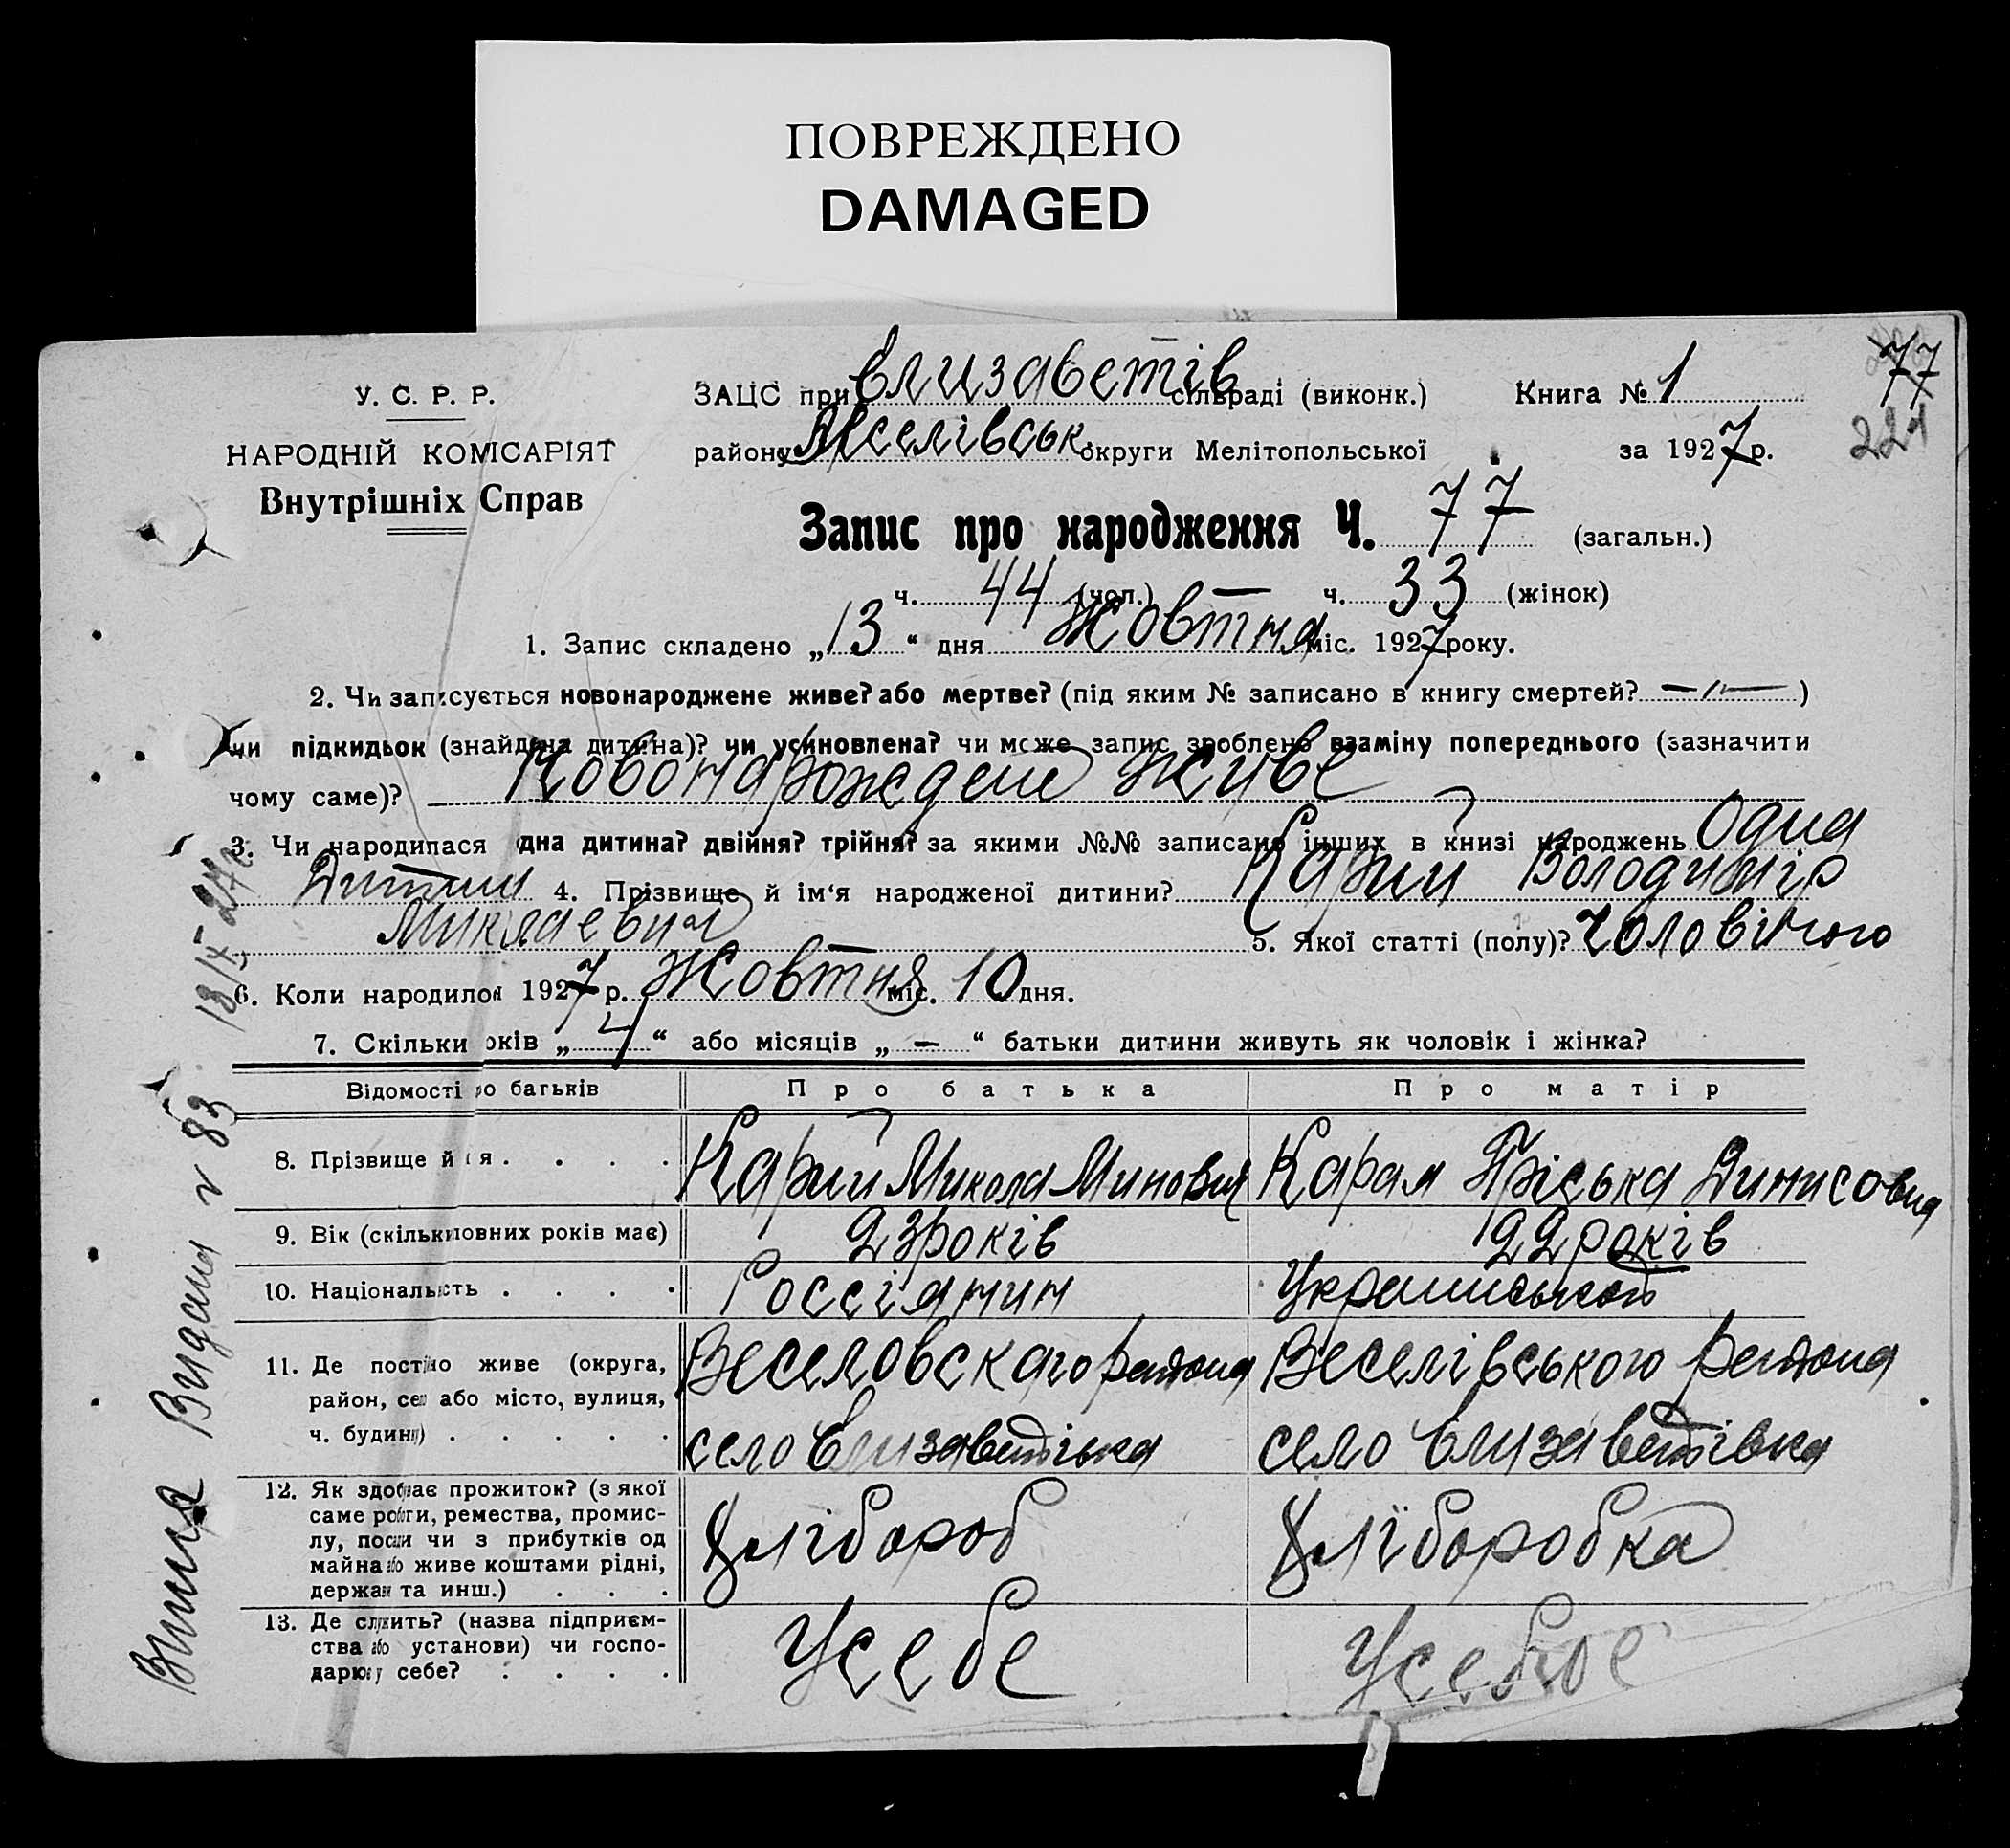 ПОВРЕЖДЕНО
DAMAGED
У. С. Р. Р.
НАРОДНІЙ КОМІСАРІЯТ
Внутрішніх Справ
ЗАЦС при Елизаветів сільраді (виконк.) Книга № 1
77
району Веселівськ округи Мелітопольської за 1927 р.
221
Запис про народження Ч. 77 (загальн.)
ч. 44 (чол.) — ч. 33 (жінок)
1. Запис складено „13“ дня Жовтня міс. 1927 року.
2. Чи записується новонароджене живе? або мертве? (під яким № записано в книгу смертей? —"— )
чи підкидьок (знайдена дитина)? чи усиновлена? чи може запис зроблено взаміну попереднього (зазначити
чому саме)? Новонарождене живе
3. Чи народилася одна дитина? двійня? трійня? за якими №№ записано інших в книзі народжень Одна
Дитина 4. Прізвище й ім‘я народженої дитини? Володимір
Миклаевич 5. Якої статті (полу)? Чоловічого
6. Коли народилоя 1927 р. Жовтня міс. 10 дня.
7. Скільки років „4“ або місяців „—“ батьки дитини живуть як чоловік і жінка?
Відомості про батьків Про батька Про матір
8. Прізвище й ія . . . . Микола Минович Карая Пріська Динисовна
9. Вік (скільки повних років має) 23 років 22 років
10. Національсть . . . . Россіянин Украинською
11. Де постіно живе (округа, Веселовскаго района Веселівського района
район, село або місто, вулиця,
ч. будинку) . . . . . село Елизаветівка село Елизаветівка
12. Як здобуває прожиток? (з якої
саме роботи, ремества, промис-
лу, посади чи з прибутків од
майна або живе коштами рідні,
держави та инш.) . . . Хлібороб Хліборобка
13. Де служить? (назва підприєм-
ства або установи) чи госпо-
дарює у себе? . . . . У себе У себе
Видана № 83